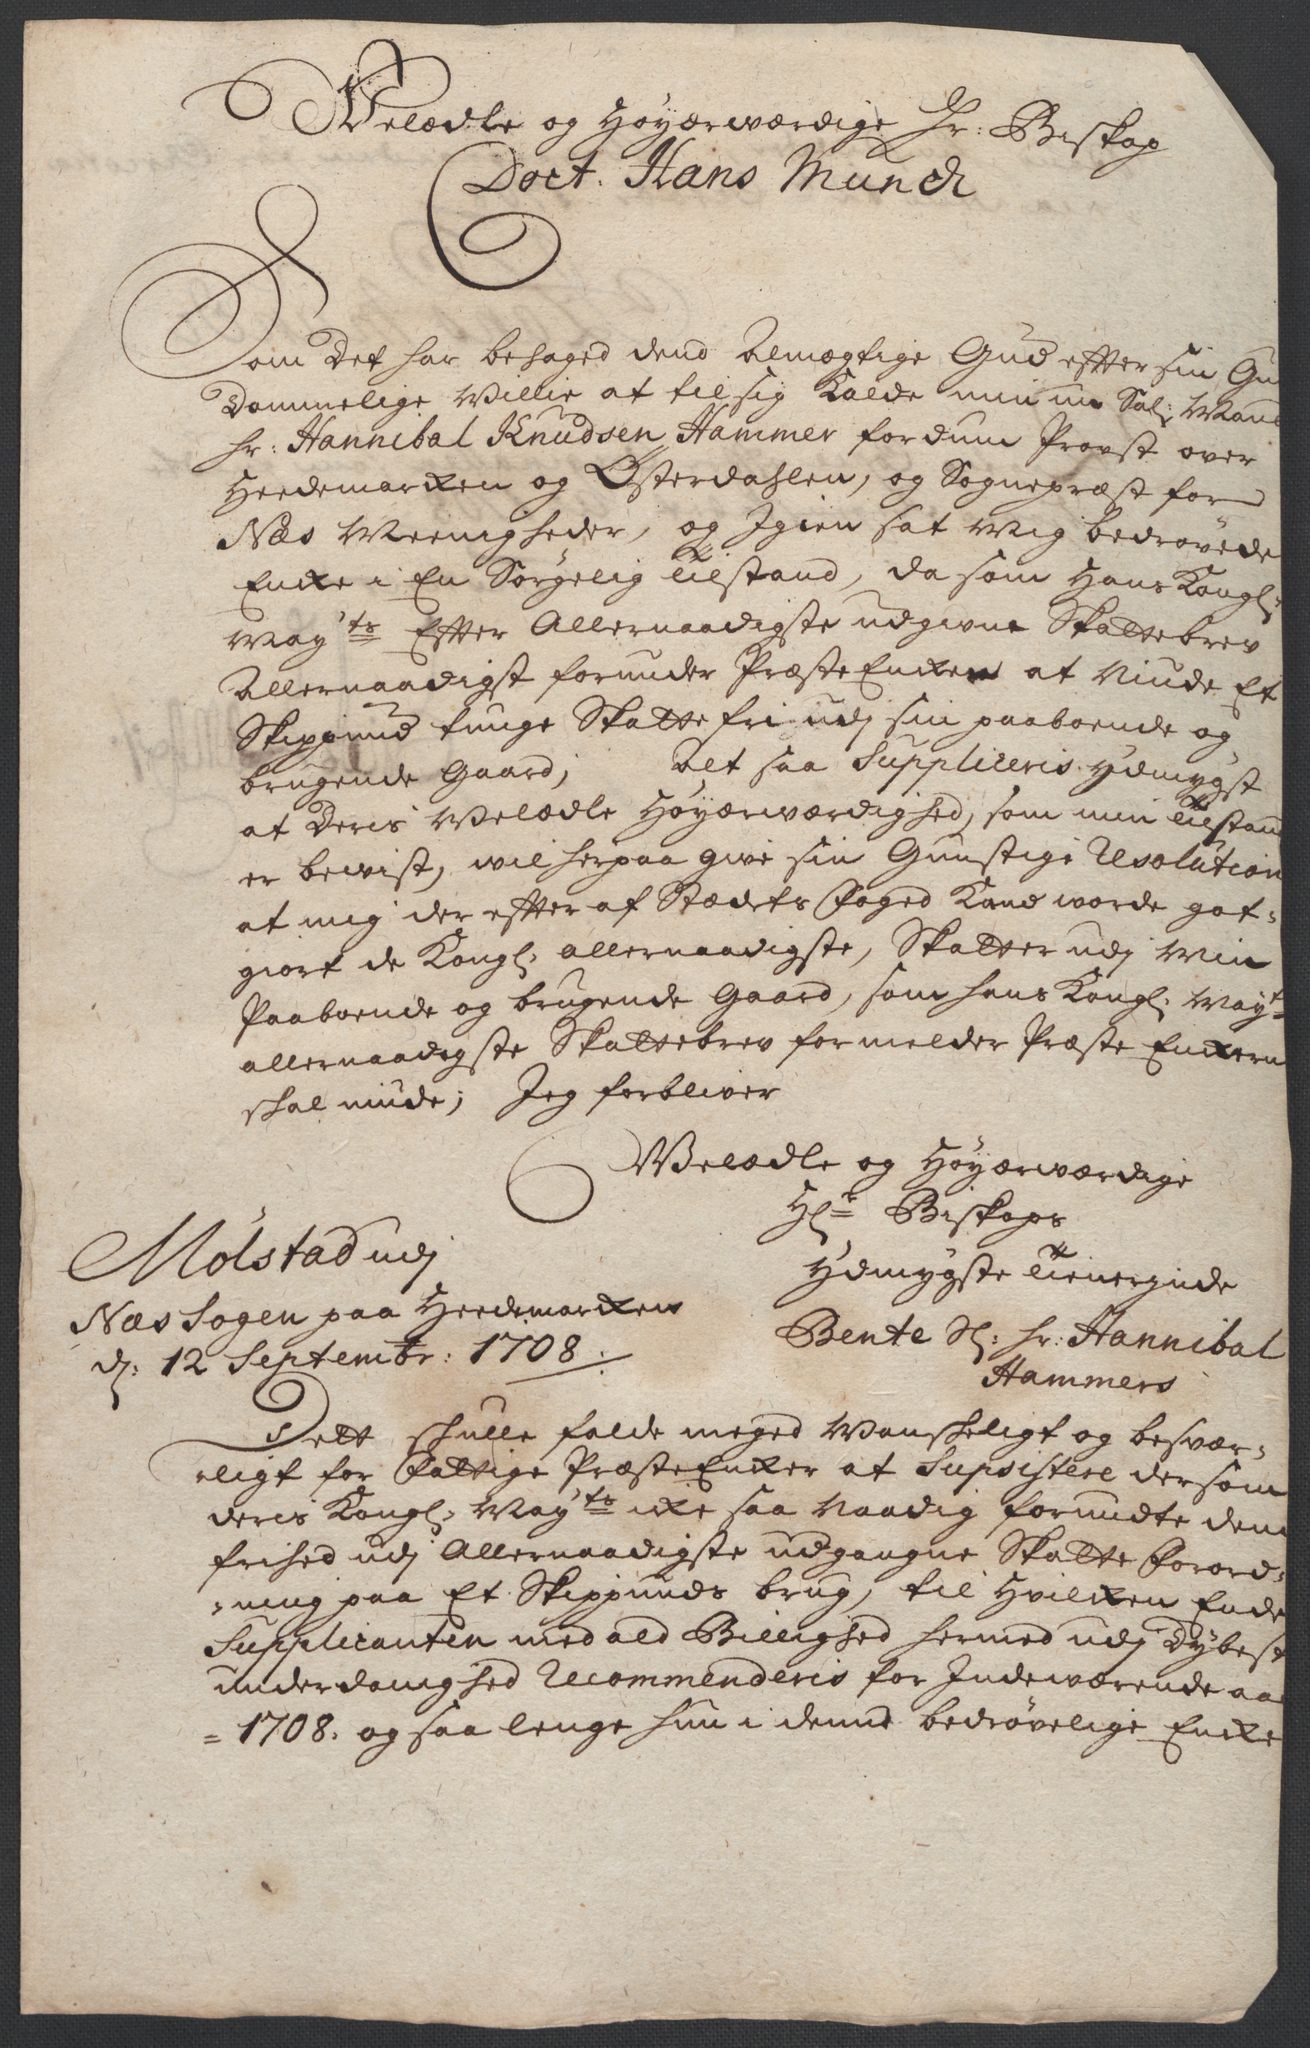 Velædle og Høyærværdige Hr: Biskop
Doct. Hans Munch
Som det har behaged dend Almægtige Gud effter sin Gu
dommelige Villie at til sig Kalde min nu Sal: Mand
hr: Hannibal Knudsen Hammer fordum Provst over
Heedemarken og Østerdahlen, og Sognepræst for
Næs Meenigheder, og Igien sat Mig bedrøvede
Encke i En Sørgelig tilstand, da som Hans Kongl:
May:ts Effter Allernaadigste udgivne Skattebrev
Allernaadigst forunder PræsteEncker at Niude Et
Skippund tunge Skatte fri udj sin paaboende og
brugende Gaard; Alt saa Supliceris ydmygst
at Deris Velædle Høyærværdighed, som min tilstand
er bevist, wil herpaa give sin Gunstige Resolution
at mig der effter af Stædets Foged Kand worde got-
giort de Kongl: allernaadigste, Skatter udj Min
Paaboende og brugende Gaard, som hans Kongl: May:t
allernaadigste Skattebrev formelder Præste Enckern
skal niude; Jeg forbliver
Velædle og Høyærværdige
Hr: Biskops
Ydmygste tienerinde
Mølstad udj
Næs Sogen paa Heedemarken
Bente Sl: hr: Hannibal
d: 12 Septembr: 1708.
Hammers
Dett skulle falde meged Vanskeligt og besvær-
ligt for Fattige PræsteEncker at Supsistere dersom
deris Kongl: May:ts icke saa Naadig forundte dem
frihed udj Allernaadigste udgangne Skatte Forord-
-ning paa Et Skippunds brug, til Hvilcken Ende
Supplicanten med ald Billighed hermed udj Dybest
underdanighed Recommenderis for Indeværende aa
= 1708. og saa lenge hun i denne bedrøvelige Encke